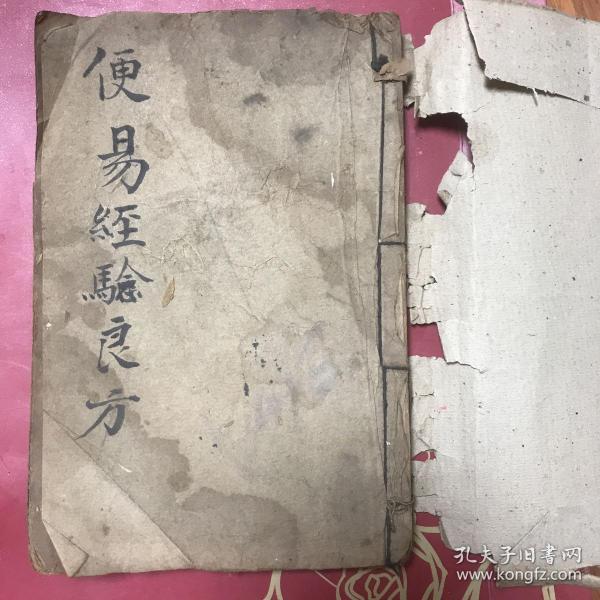 便易經驗良方
孔夫子旧書网
www.kongfz.com